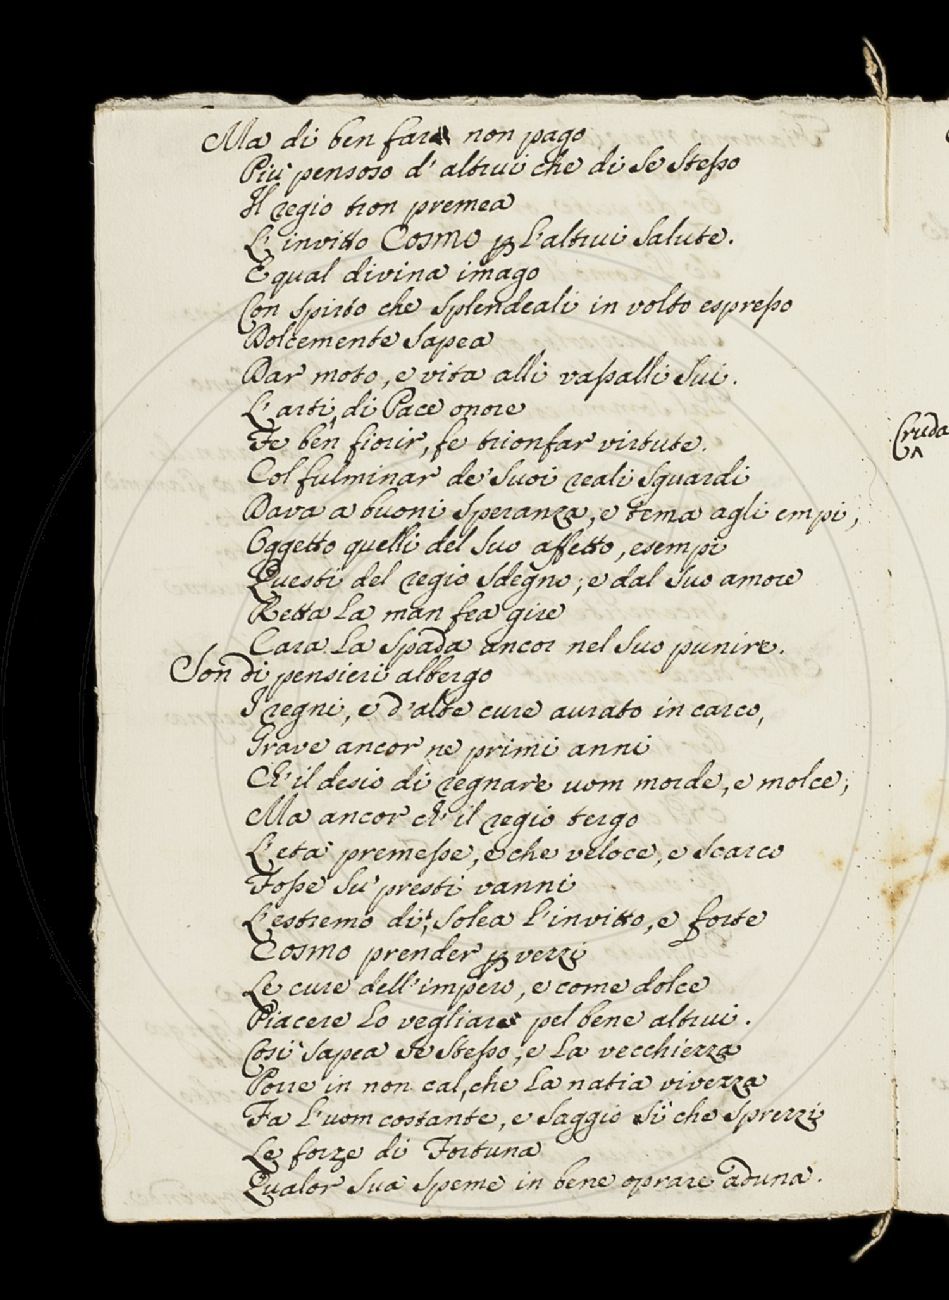 Ma di ben fare non pago
Più pensoso d'altrui che di se stesso
Il regio tron premea
L'invitto Cosmo p l'altrui salute.
E qual divina imago
Con spirto che splendeali in volto espresso
Dolcemente sapea
Dar moto, e vita alli vassalli sui.
L'arti, di Pace onore
Fe ben fiorir, fe trionfar virtute.
Col fulminar de' suoi reali sguardi
Dava a buoni speranza, e tema agli empi,
Oggetto quelli del suo affetto, esempi
Questi del regio sdegno; e dal suo amore
Retta la man fea gire
Cara la spada ancor nel suo punire.
Son di pensieri albergo
I regni, e d'alte cure aurato incarco,
Grave ancor ne primi anni
Ch'il desio di regnare uom morde, e molce;
Ma ancor ch'il regio tergo
L'età premesse, e che veloce, e scarco
Fosse su' presti vanni
L'estremo dì; solea l'invitto, e forte
Cosmo prender p vezzi
Le cure dell'impero, e come dolce
Piacere lo vegliare pel bene altrui.
Così sapea se stesso, e la vecchiezza
Porre in non cal, che la natia vivezza
Fa l'uom costante, e saggio sì che sprezzi
Le forze di Fortuna
Qualor sua speme in bene oprare aduna.
Cruda